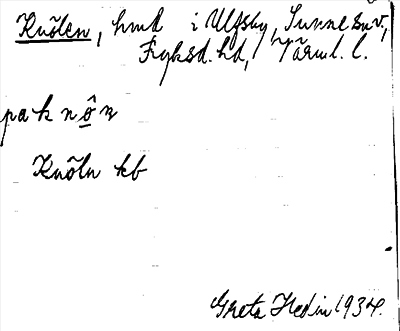 Knôlen, hmd i Ulfsby, Sunne snv,
Fryksd. hd, Värml. l.
pa k nô̲n
Knôln kb
Greta Hedin 1934.